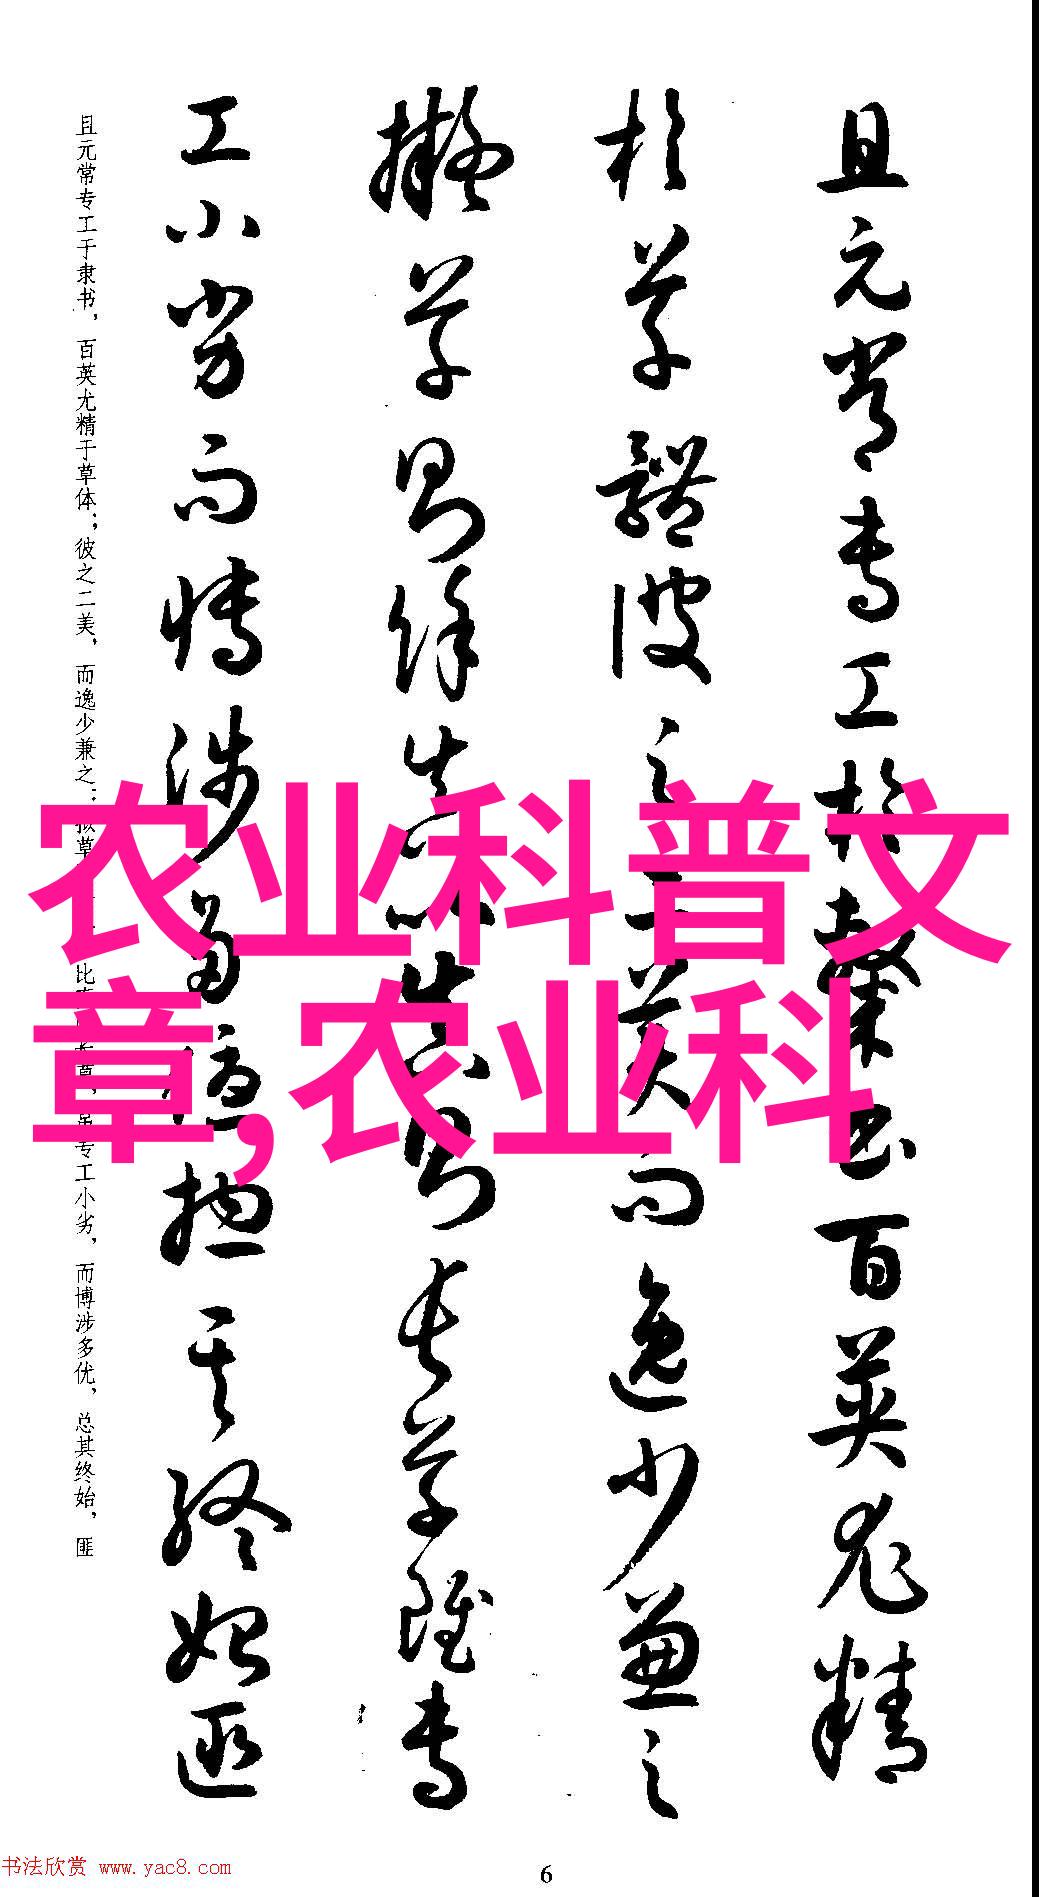 且元常专工于隶
书百英尤精
于草体彼之二美而逸少兼之
拟草则余真比真则长草虽专
工小劣而博涉多优总其终始匪
且元常专工于隶书，百英尤精于草体；彼之二美，而逸少兼之；拟草
比
长草，虽专工小劣，而博涉多优，总其终始，匪
农业科普文
章,农业科
书法欣赏 www.yac8.com
6